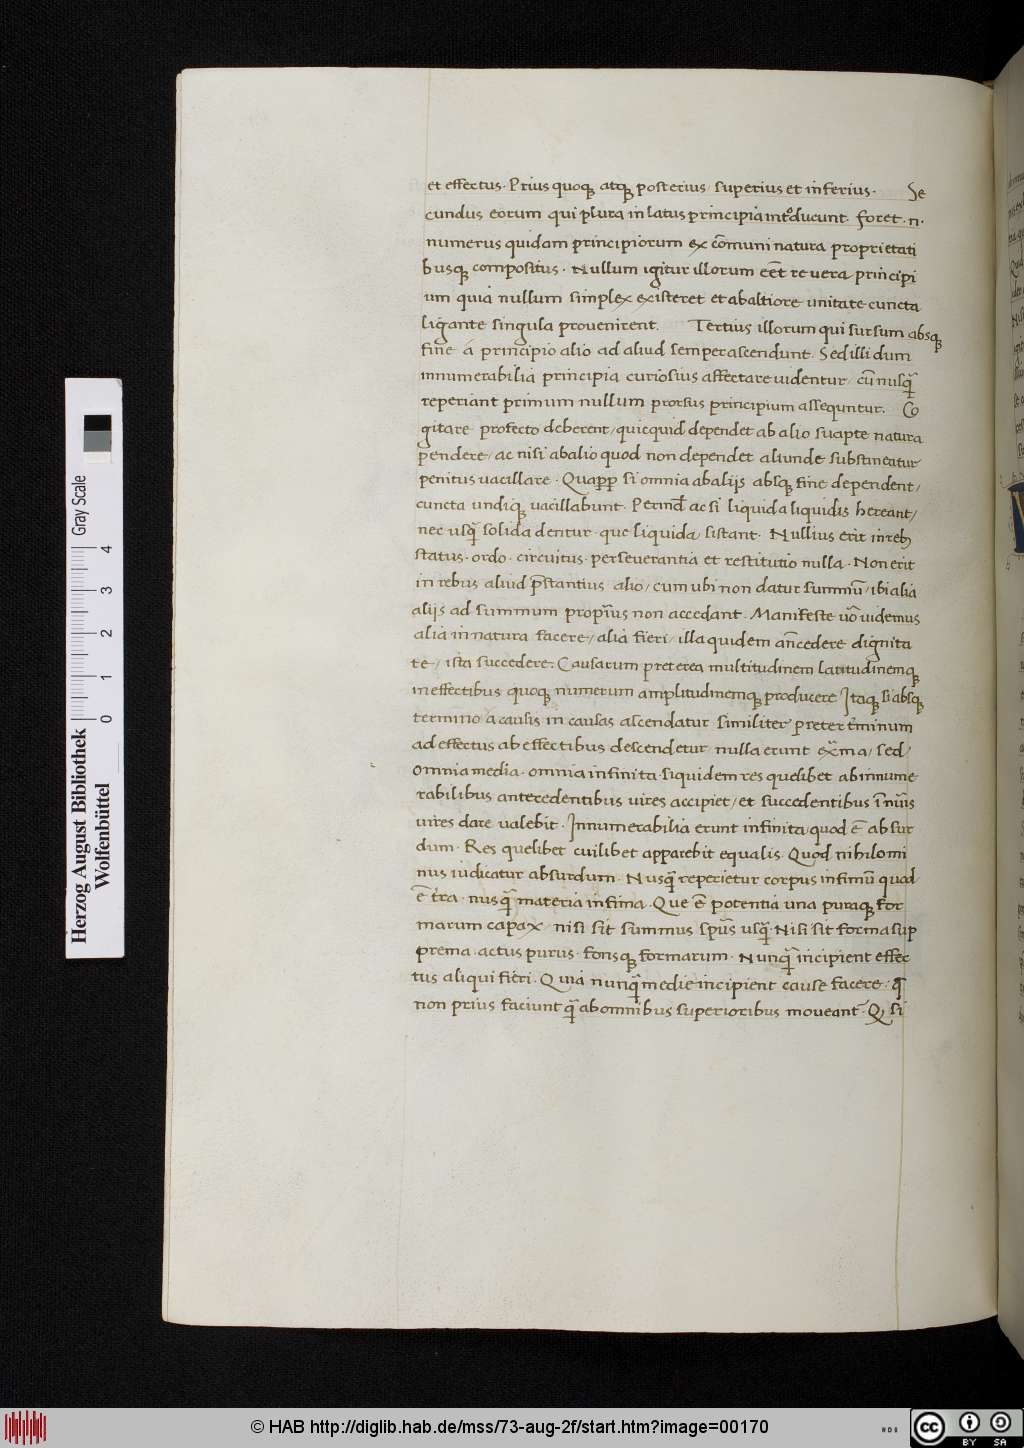 et effectus · Prius quoqꝫ atqꝫ posterius / superius et inferius · Se
cundus eorum qui plura in latus principia int°ducunt. foret .n.
numerus quidam principiorum ex cōmuni natura proprietati
busqꝫ compositus · Nullum igitur illorum eēt re uera principi
um quia nullum simplex existeret et ab altiore unitate cuncta
ligante singula provenirent. Tertius illorum qui sursum absqꝫ
fine á principio alio ad aliud semper ascendunt. Sed illi dum
innumerabilia principia curiosius affectare uidentur / cū nusq̄
reperiant primum nullum prorsus principium assequntur. Co
gitare profecto deberent / quicquid dependet ab alio suapte natura
pendere / ac nisi ab alio quod non dependet aliunde substineatur
penitus uacillare · Quapp̄ si omnia ab alijs absqꝫ fine dependent /
cuncta undiqꝫ uacillabunt · Perind̄ ac si liquida liquidis hereant /
nec usq̄ solida dentur · que liquida / sistant. Nullius erit in reb
status · ordo · circuitus · perseverantia et restitutio nulla · Non erit
in rebus aliud p̄stantius alio / cum ubi non datur summū / ibi alia
alijs ad summum propīus non accedant. Manifeste uō uidemus
alia in natura facere / alia fieri / illa quidem an̄cedere dignita
te / ista succedere. Causarum preterea multitudinem latitudinemqꝫ
in effectibus quoqꝫ numerum amplitudinemqꝫ producere Itaqꝫ si absqꝫ
termino a causis in causas ascendatur similiter preter t̄minum
ad effectus ab effectibus descendetur nulla erunt ex̄ma / sed /
omnia media · omnia infinita siquidem res quelibet ab innume
rabilibus antecedentibus uires accipiet / et succedentibus īnūis
uires dare ualebit · Innumerabilia erunt infinita quod ē absur
dum · Res quelibet cuilibet apparebit equalis. Quod nihilomi
nus iudicatur absurdum · Nusq̄ reperietur corpus infimū quod
ē t̄ra · nusq̄ materia infima · Que ē potentia una puraqꝫ for
marum capax / nisi sit summus sp̄us usq̄ · Nisi sit forma sup
prema · actus purus · fonsqꝫ formarum · Nunq̄ incipient effec
tus aliqui fieri · Quia nunq̄ medie incipient cause facere · q̄
non prius faciunt q̄ ab omnibus superioribus moveant̄ · Q si
Herzog August Bibliothek
Wolfenbüttel
0 1 2 3 4
Gray Scale
© HAB http://diglib.hab.de/mss/73-aug-2f/start.htm?image=00170
cc BY SA